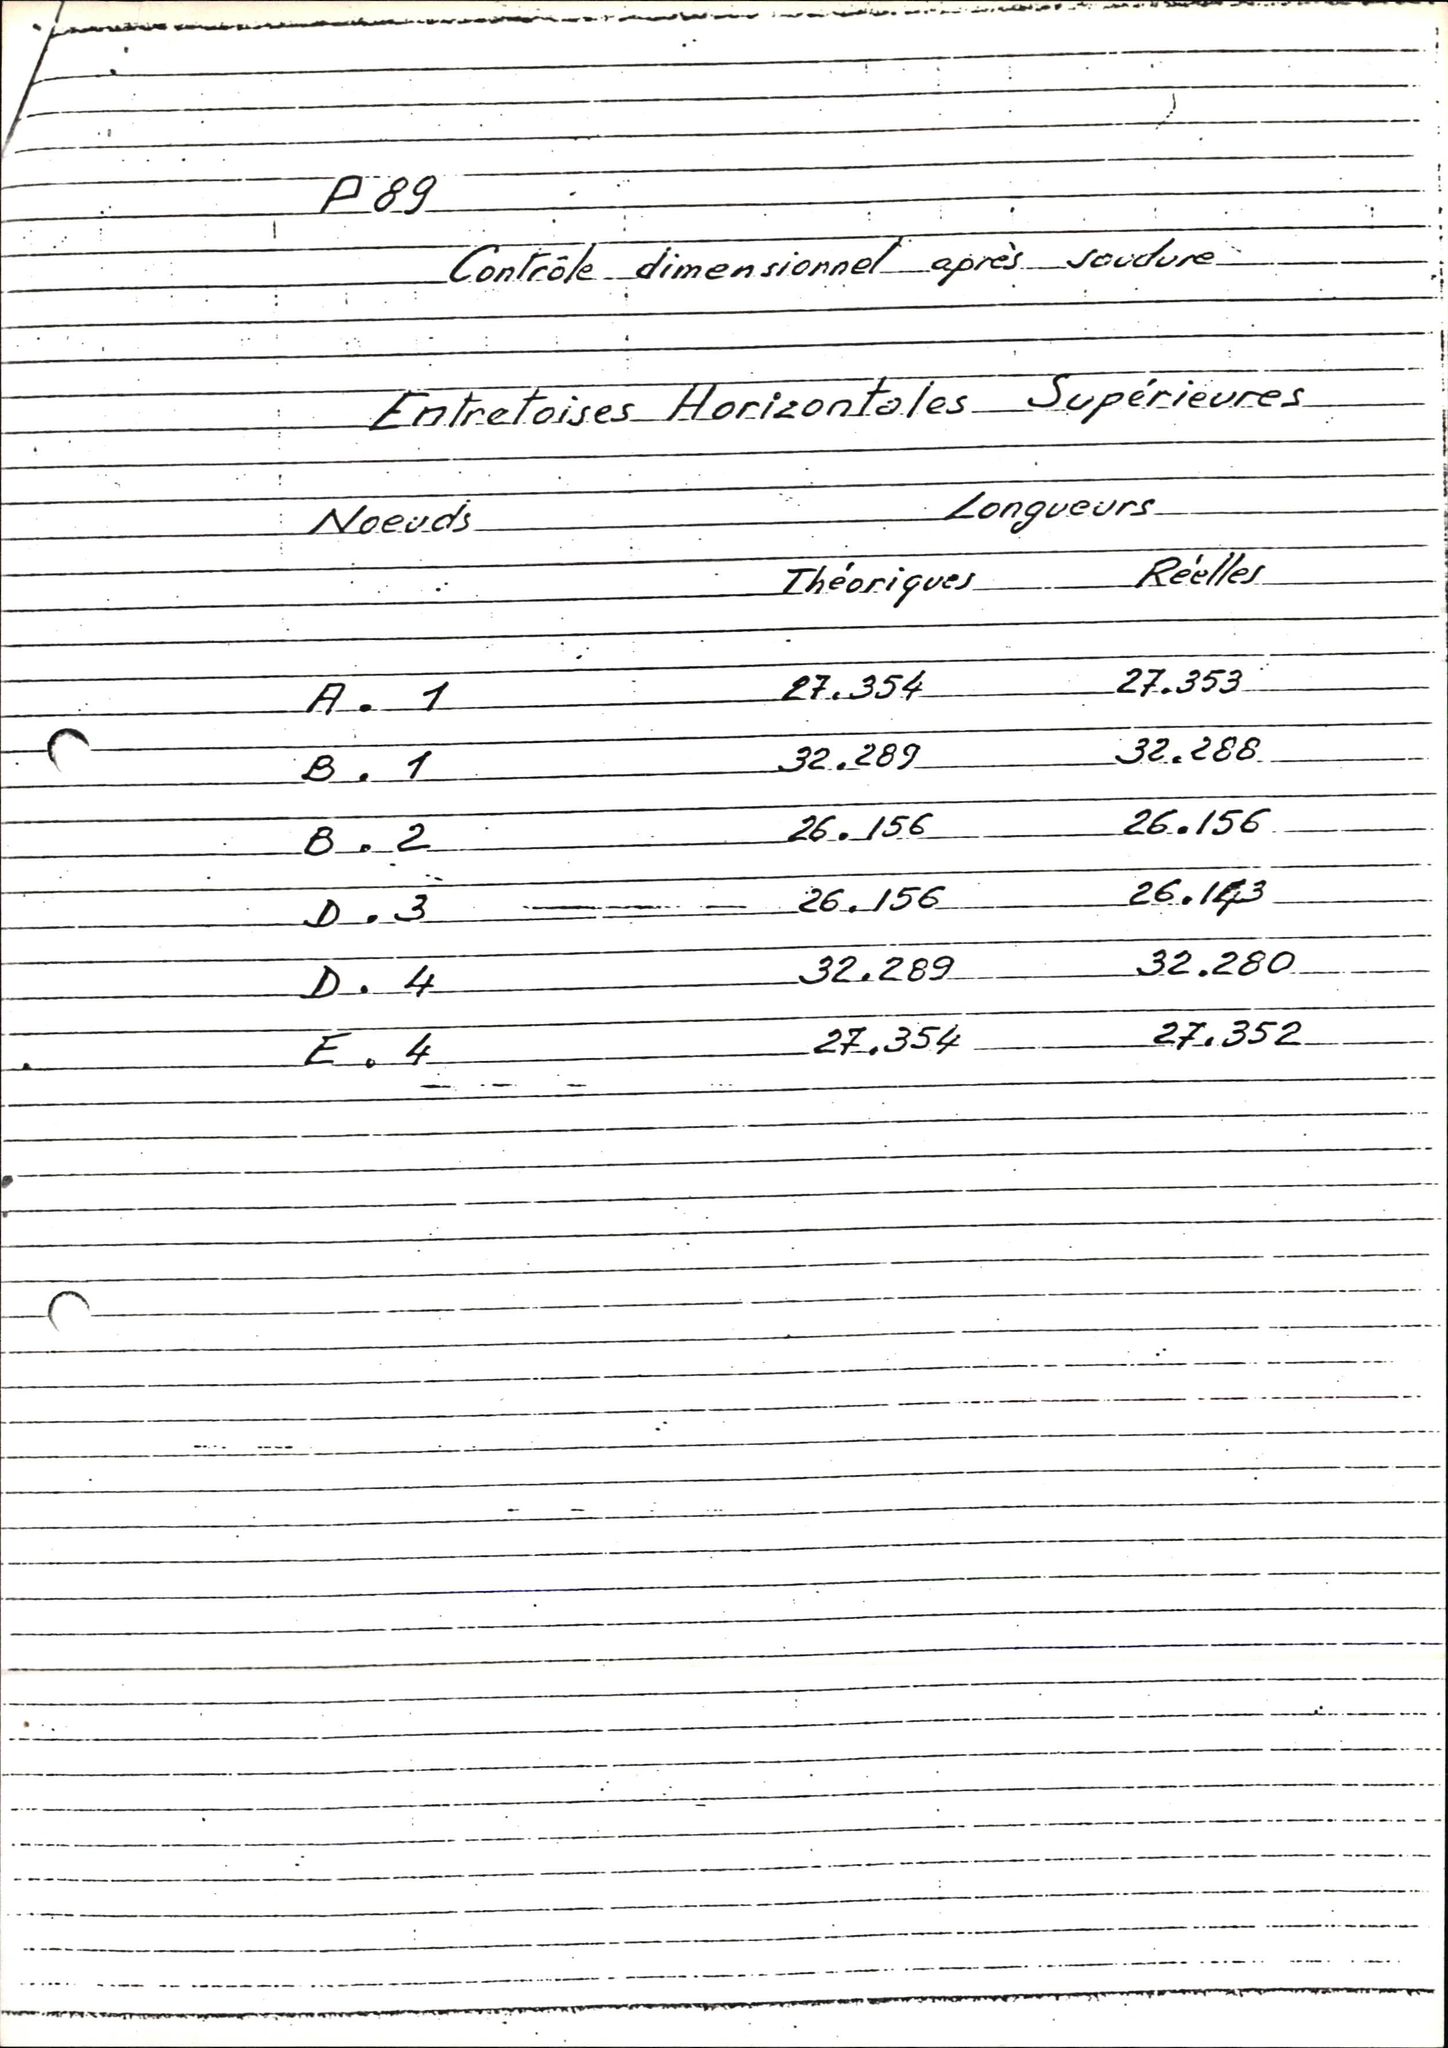 P 89
Contrôle dimensionnel après soudure
Entretoises Horizontales Supérieures
Noeuds Longueurs
Théoriques Réelles
A. 1 27.354 27.353
B. 1 32.289 32.288
B. 2 26.156 26.156
D. 3 26.156 26.143
D. 4 32.289 32.280
E. 4 27.354 27.352